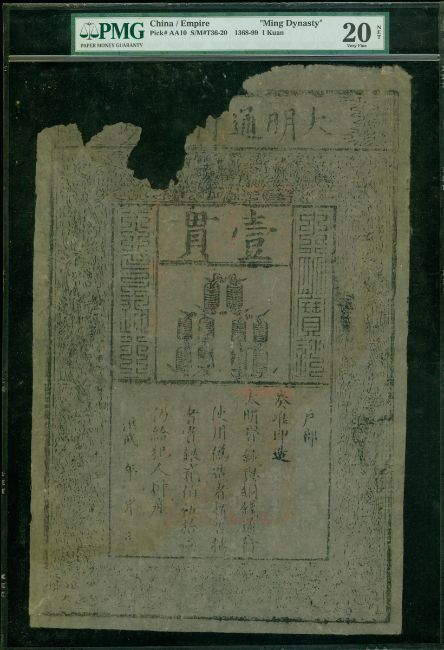 PMG
PAPER MONEY GUARANTY
China / Empire "Ming Dynasty"
Pick# AA10 S/M#T36-20 1368-99 1 Kuan
20 NET
Very Fine
大明通
壹貫
戶部
奏准印造
大明寶鈔與銅錢通行
使用偽造者斬告捕
者賞銀貳伍拾
仍給犯人財產
年 月 日